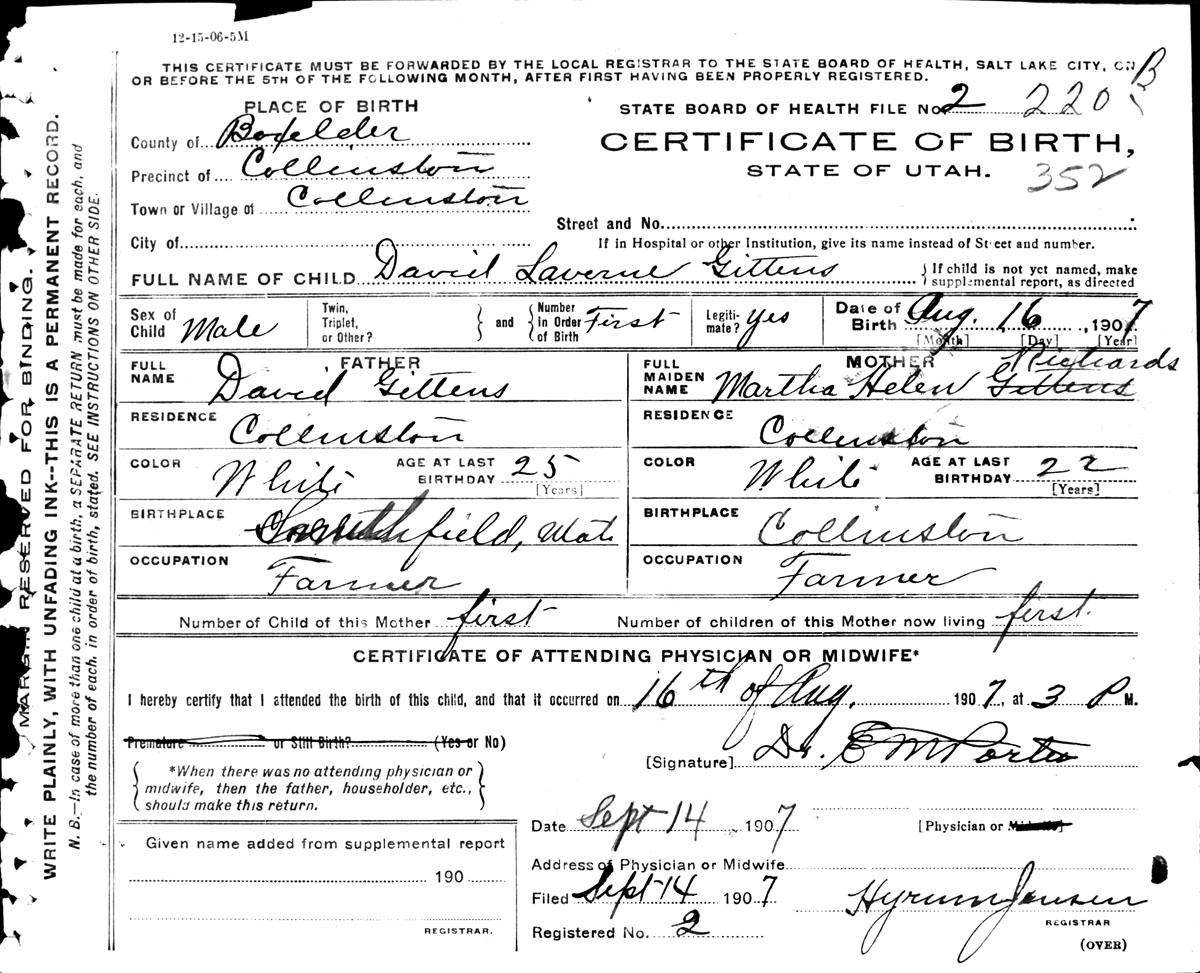 12-15-06-5M
THIS CERTIFICATE MUST BE FORWARDED BY THE LOCAL REGISTRAR TO THE STATE BOARD OF HEALTH, SALT LAKE CITY, ON B
OR BEFORE THE 5TH OF THE FOLLOWING MONTH, AFTER FIRST HAVING BEEN PROPERLY REGISTERED.
PLACE OF BIRTH
STATE BOARD OF HEALTH FILE No. 2 220
County of Boxelder
CERTIFICATE OF BIRTH,
Precinct of Collinston
STATE OF UTAH. 352
Town or Village of Collinston
Street and No.
City of
If in Hospital or other Institution, give its name instead of Street and number.
FULL NAME OF CHILD David Laverne Gittens
If child is not yet named, make
supplemental report, as directed
Sex of Child Male
Twin, Triplet, or Other?
and
Number in Order of Birth First
Legitimate? yes
Date of Birth Aug. 16, 1907
[Month] [Day] [Year]
FATHER
FULL NAME David Gittens
MOTHER
FULL MAIDEN NAME Martha Helen Gittens Richards
RESIDENCE Collinston
RESIDENCE Collinston
COLOR White
AGE AT LAST BIRTHDAY 25
[Years]
COLOR White
AGE AT LAST BIRTHDAY 22
[Years]
BIRTHPLACE Smithfield, Utah
BIRTHPLACE Collinston
OCCUPATION Farmer
OCCUPATION Farmer
Number of Child of this Mother first
Number of children of this Mother now living first.
CERTIFICATE OF ATTENDING PHYSICIAN OR MIDWIFE*
I hereby certify that I attended the birth of this child, and that it occurred on 16th of Aug. 1907, at 3 P M.
Premature or Still Birth? (Yes or No)
[Signature] Dr. E M Porter
*When there was no attending physician or
midwife, then the father, householder, etc.,
should make this return.
Date Sept 14, 1907
[Physician or Midwife]
Given name added from supplemental report
190
REGISTRAR.
Address of Physician or Midwife
Filed Sept 14 1907
Hyrum Jensen
REGISTRAR
Registered No. 2
(OVER)
MARGIN RESERVED FOR BINDING.
WRITE PLAINLY, WITH UNFADING INK--THIS IS A PERMANENT RECORD.
N. B.—In case of more than one child at a birth, a SEPARATE RETURN must be made for each, and
the number of each, in order of birth, stated. SEE INSTRUCTIONS ON OTHER SIDE.